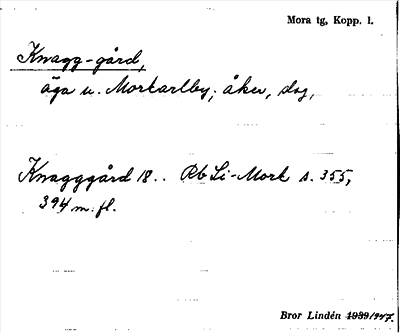 Mora tg, Kopp. l.
Knagg-gård,
äga u. Morkarlby; åker, dsg,
Knagggård 18.. Rb Li-Mork s. 355,
394 m. fl.
Bror Lindén 1939/